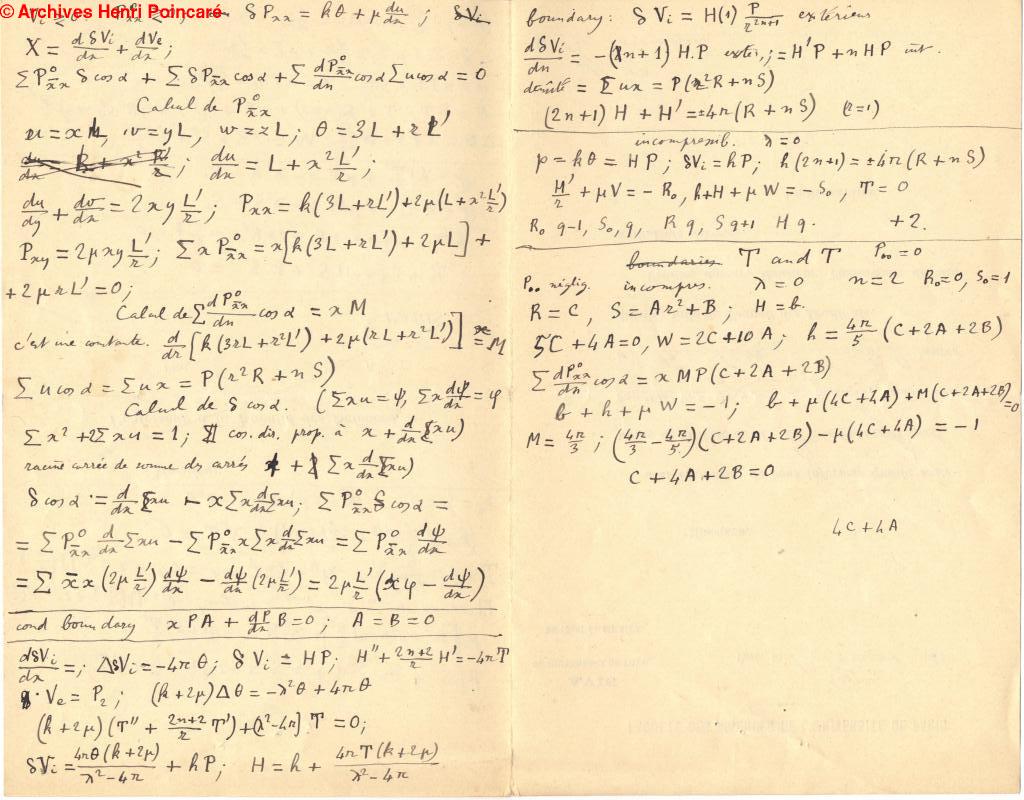 © Archives Henri Poincaré
δP_xx = kθ + μ du/dx ; δV_i
X = dδV_i/dx + dV_e/dx ;
ΣP°_xx δ cos α + Σ δP_xx cos α + Σ dP°_xx/dn cos α Σ u cos α = 0
Calcul de P°_xx
u = xL, v = yL, w = zL ; θ = 3L + rL'
du/dx = L + x² L'/r ;
du/dy + dv/dx = 2xy L'/r ; P_xx = k(3L + rL') + 2μ(L + x² L'/r)
P_xy = 2μxy L'/r ; Σ x P°_xx = x[k(3L + rL') + 2μL] +
+ 2μrL' = 0 ;
Calcul de Σ dP°_xx/dn cos α = xM
c'est une constante. d/dr [k(3rL + r²L') + 2μ(rL + r²L')] = M
Σ u cos α = Σ ux = P(r²R + nS)
Calcul de δ cos α. (Σxu = ψ, Σx dψ/dx = φ
Σx² + 2Σxu = 1 ; cos. dir. prop. à x + d/dx (Σxu)
racine carrée de somme des carrés 1 + Σx d/dx (Σxu)
δ cos α = d/dx Σxu - xΣx d/dx Σxu ; ΣP°_xx δ cos α =
= ΣP°_xx d/dx Σxu - ΣP°_xx xΣx d/dx Σxu = ΣP°_xx dψ/dx
= Σ x x (2μ L'/r) dψ/dx - dψ/dx (2μ L'/r) = 2μ L'/r (xφ - dψ/dx)
cond boundary xPA + dP/dx B = 0 ; A = B = 0
dδV_i/dx = ; ΔδV_i = -4πθ ; δV_i = HP ; H'' + 2n+2/r H' = -4πT
V_e = P_2 ; (k+2μ)Δθ = -λ²θ + 4πθ
(k+2μ)(T'' + 2n+2/r T') + (λ²-4π) T = 0 ;
δV_i = 4πθ(k+2μ)/λ²-4π + hP ; H = h + 4πT(k+2μ)/λ²-4π
boundary : δV_i = H(1) P/r^2n+1 extérieur
dδV_i/dn = -(n+1) H.P exter., ; = H'P + nHP int.
densité = Σux = P(r²R + nS)
(2n+1) H + H' = ±4π(R + nS) (r=1)
incompressib. λ = 0
p = kθ = HP ; δV_i = hP ; h(2n+1) = ±4π(R + nS)
H'/r + μV = -R₀, h + H + μW = -S₀, T = 0
R₀ q-1, S₀, q, R q, S q+1 H q. +2.
boundaries T and T P₀₀ = 0
P₀₀ néglig. incompres. λ = 0 n = 2 R₀ = 0, S₀ = 1
R = C, S = Ar² + B ; H = b.
5C + 4A = 0, W = 2C + 10A ; h = 4π/5 (C + 2A + 2B)
Σ dP°_xx/dn cos α = xMP(C + 2A + 2B)
b + h + μW = -1 ; b + μ(4C + 4A) + M(C + 2A + 2B) = 0
M = 4π/3 ; (4π/3 - 4π/5)(C + 2A + 2B) - μ(4C + 4A) = -1
C + 4A + 2B = 0
4C + 4A